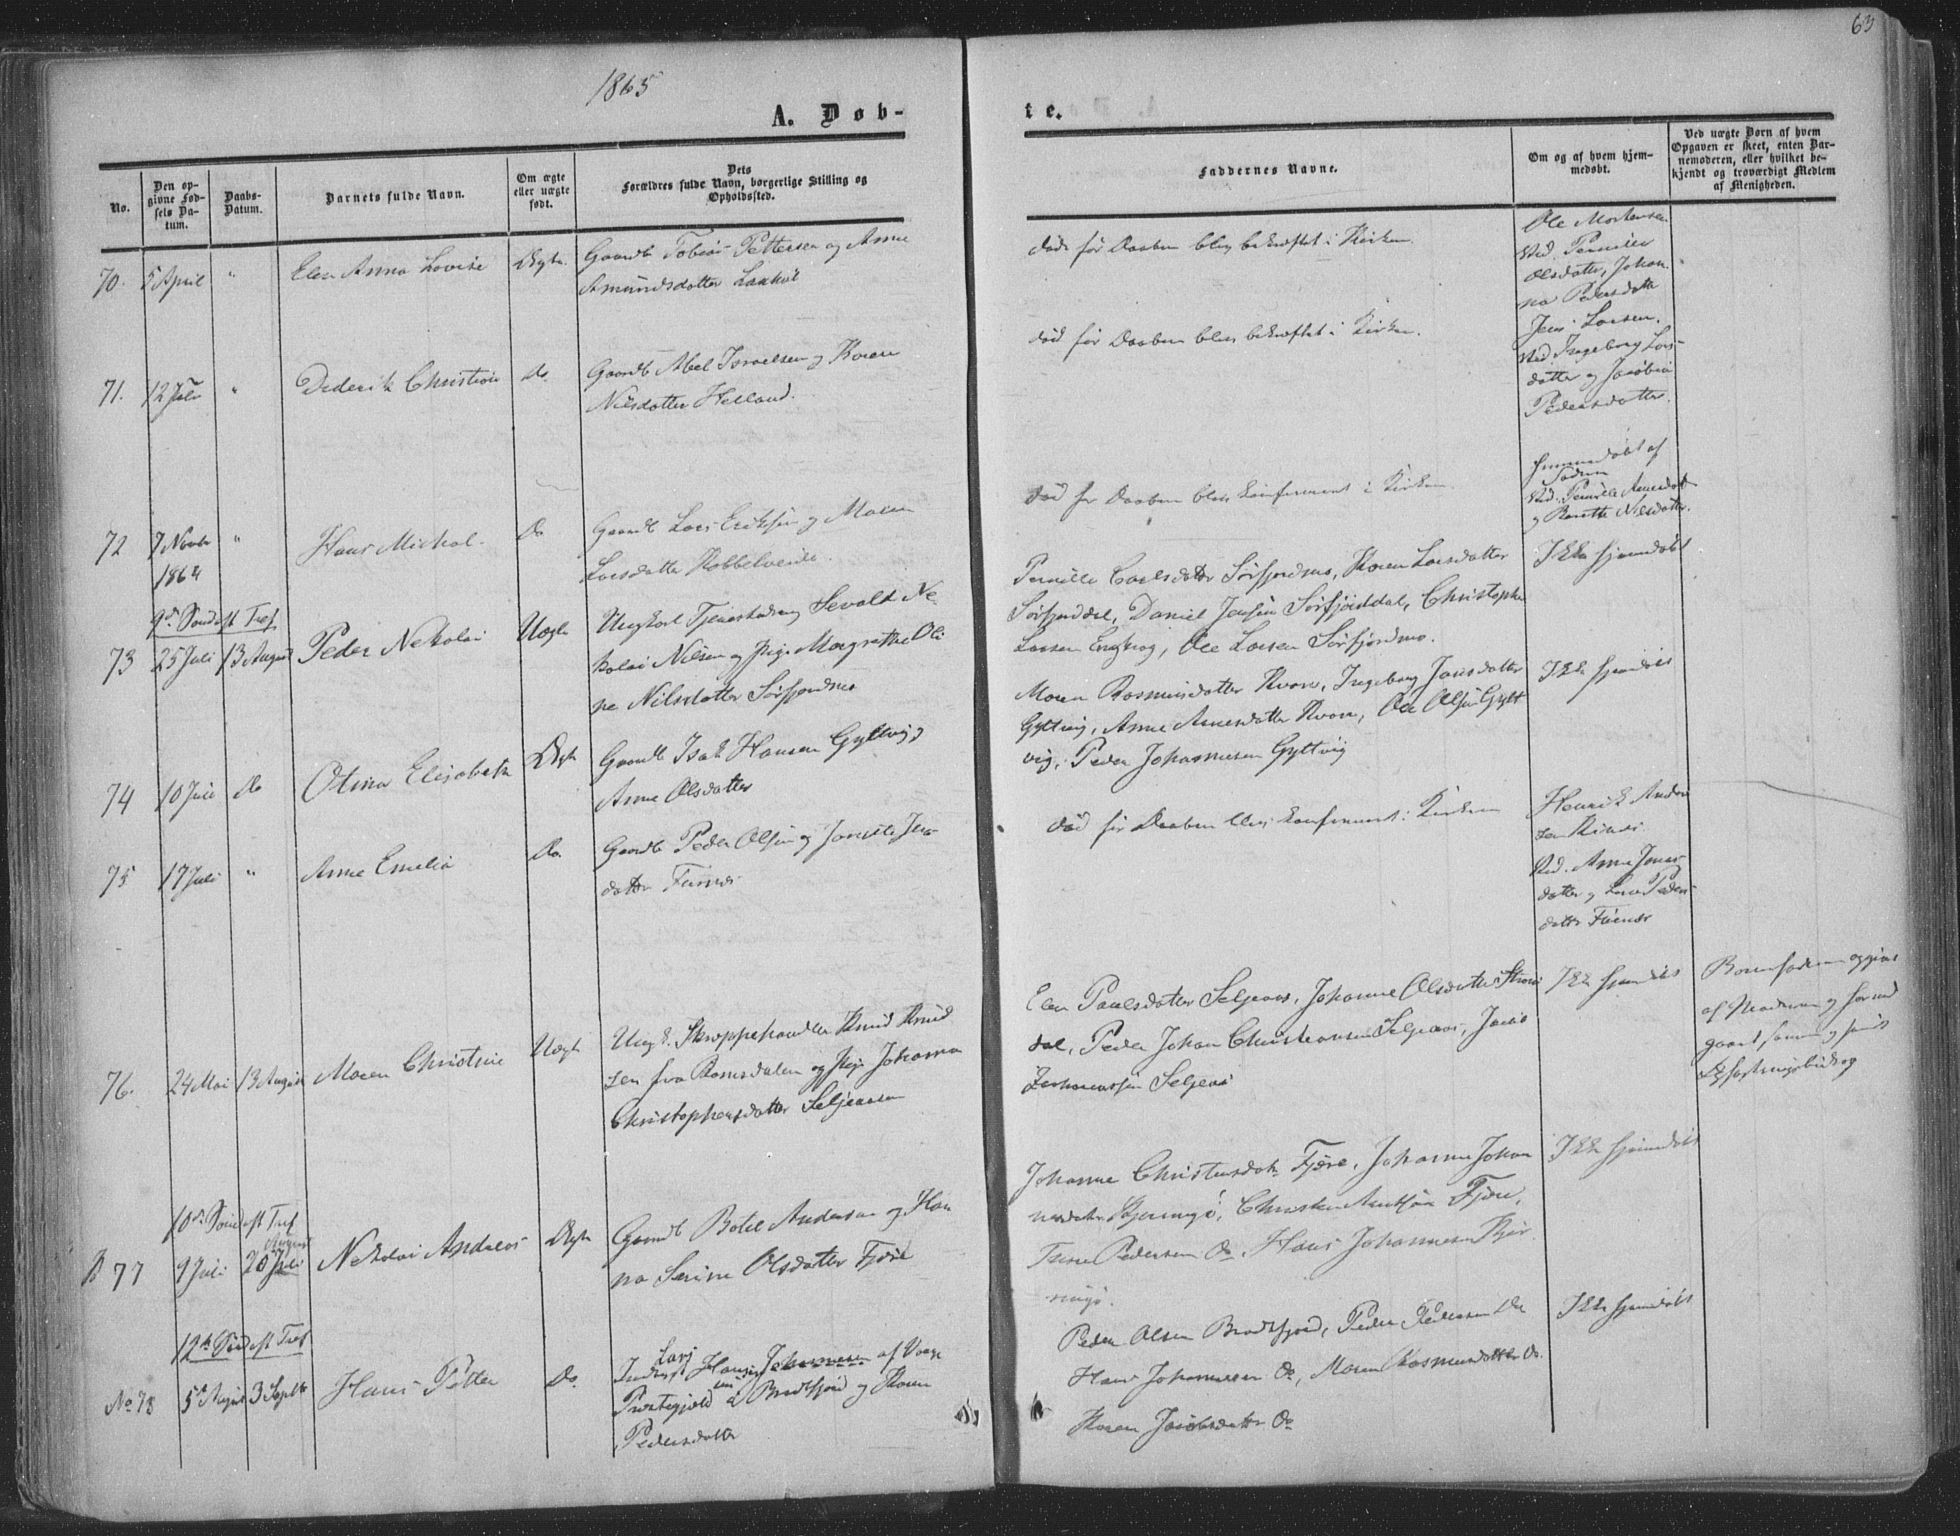 63
1865
A. Døb-
te.
No.
Den op-
givne Fød-
sels Da-
tum.
Daabs-
Datum.
Barnets fulde Navn.
Om ægte
eller uægte
født.
Dets
Forældres fulde Navn, borgerlige Stilling og
Opholdssted.
Faddernes Navne.
Om og af hvem hjem-
medøbt.
Ved uægte Born af hvem
Opgaven er skeet, enten Bar-
nemoderen, eller hvilket be-
kjendt og troværdigt Medlem
af Menigheden.
70. 5 April " Elen Anna Lovise Ægte Gaardb Tobias Pettersen og Anne
Amundsdatter
død før Daaben blev bekræftet i Kirken.
Ole Mortensen
Vid. Pernille
Olsdatter, Johan
na Pedersdatter
71. 12 Juli " Dederik Christian do. Gaardb Abel Israelsen og Karen
Nilsdatter Helland.
død før Daaben blev bekræftet i Kirken.
Jens Larsen.
Vid. Ingeborg Lars-
datter og Jacobia
Pedersdatter.
72 7 Novbr " Hans Michal. Do Gaardb Lars Eriksen og Maren
1864
Larsdatter Kobbelveide.
død før Daaben blev konfirmeret i Kirken.
hjemmedøbt af
Faderen
Vid. Pernille
og Nilsdatter.
9de Sønd eft Tref
73 25 Juli 13 August Peder Nekolai Uægte Ungkarl Tjenestedreng Sevald Ne-
kolai Nilsen og Pige Margrethe Oli
ne Nilsdatter Sørfjordmo
Pernille Carlsdatter Sørfjordmo, Karen Larsdatter
Sørfjorddal, Daniel Jensen Sørfjorddal, Christopher
Larsen Engkrog, Ole Larsen Sørfjordmo.
Ikke hjemdøbt
74 10 Juli do Otina Elisabeth Ægte Gaardb Isak Hansen Gyltvig og
Anne Olsdatter
Maren Rasmusdatter Kvarv, Ingeborg Jansdatter
Gyltvig, Anne Arnesdatter Kvarv, Ole Olsen Gylt
vig, Peder Johannesen Gyltvig
Ikke hjemdøbt
75 17 Juli " Anne Emelia Do. Gaardb Peder Olsen og
datter
død før Daaben blev konfirmeret i Kirken
Henrik Ander
sen
Vid. Anne Jens
datter og Peders
datter
76. 24 Mai 13 August Maren Christine Uægte Ungk. Skræppehandler Knud Knud
sen fra Romsdalen og Pige Johanna
Christophersdatter Seljeaasen
Elen Paulsdatter Seljeaas, Johanne Olsdatter
dal, Peder Johan Christiansen Seljeaas,
Johannessen Seljeaas
Ikke hjemdøbt
Barnefaderen opgivet
af Moderen og
10de Sønd eft Tref
77 9 Juli 20 August Juli Nekolai Andreas Ægte Gaardb Botel Andersen og Han
na Serine Olsdatter Fjære
Johanne Christensdatr Fjære, Johanne Johan
nesdatr Kjerringø, Christen Fjære,
Pedersen do, Hans Johannesen Kjer
ringø.
Ikke hjemdøbt
12te Sønd eft Tref
No 78 5te August 3 Septbr Hans Petter Do. Lars
Hansen Johannesen af
Præstegjæld Bradtfjord og Karen
Pedersdatter
Peder Olsen Bradtfjord, Peder Pedersen Do
Hans Johannesen Do, Maren Rasmusdatter Do.
Karen Jacobsdatter Do
Ikke hjemdøbt